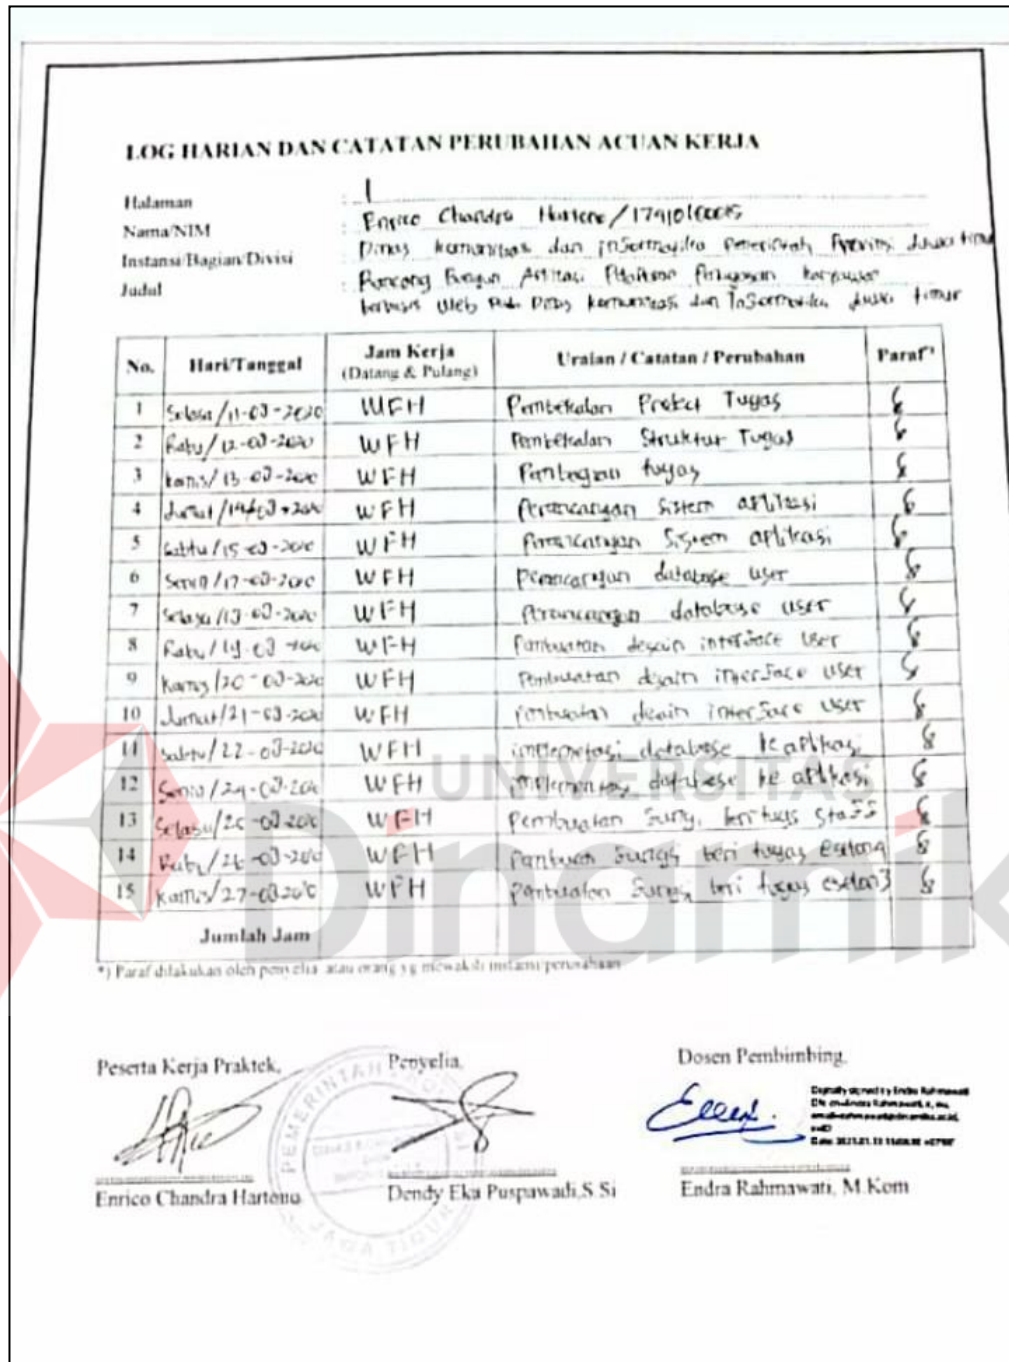 LOG HARIAN DAN CATATAN PERUBAHAN ACUAN KERJA
Halaman : 1
Nama/NIM : Enrico Chandra Hartono/17410100015
Instansi/Bagian/Divisi : Dinas komunikasi dan informatika Pemerintah Provinsi Jawa timur
Judul : Rancang Bangun Aplikasi karyawan
berbasis Web Pada Dinas komunikasi dan Informatika Jawa timur
No. Hari/Tanggal Jam Kerja (Datang & Pulang) Uraian / Catatan / Perubahan Paraf*)
1 Selasa/11-08-2020 WFH Pembekalan Tugas
2 Rabu/12-08-2020 WFH Pembekalan Struktur Tugas
3 kamis/13-08-2020 WFH Pembagian tugas
4 Jumat/14-08-2020 WFH Perancangan Sistem aplikasi
5 Sabtu/15-08-2020 WFH Perancangan Sistem aplikasi
6 Senin/17-08-2020 WFH Perancangan database user
7 Selasa/18-08-2020 WFH Perancangan database user
8 Rabu/19-08-2020 WFH Pembuatan desain interface user
9 Kamis/20-08-2020 WFH Pembuatan desain interface user
10 Jumat/21-08-2020 WFH Pembuatan deain interface user
11 Sabtu/22-08-2020 WFH implemetasi database ke aplikasi
12 Senin/24-08-2020 WFH implementasi database ke aplikasi
13 Selasa/25-08-2020 WFH Pembuatan Fungsi beri tugas staFF
14 Rabu/26-08-2020 WFH Fungsi beri tugas
15 Kamis/27-08-2020 WFH Pembuatan Fungsi beri tugas eselon3
Jumlah Jam
*) Paraf dilakukan oleh penyelia atau orang yg mewakili instansi/perusahaan
UNIVERSITAS
Dinamik
Peserta Kerja Praktek, Penyelia, Dosen Pembimbing,
PEMERINTAH
JAWA TIMUR
Digitally signed by Endra Rahmawati
Enrico Chandra Hartono Dendy Eka Puspawadi,S.Si Endra Rahmawati, M.Kom